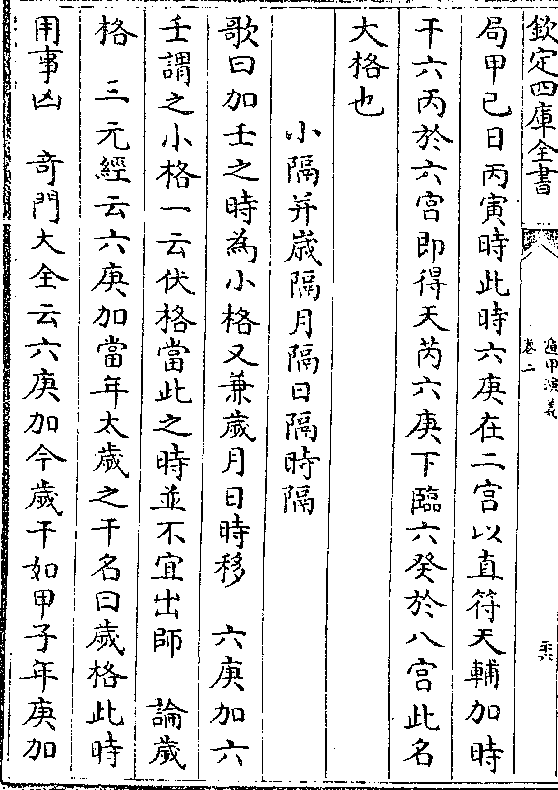 欽定四庫全書
遁甲演義
卷二
局甲己日丙寅時此時六庚在二宫以直符天輔加時
干六丙於六宫即得天芮六庚下臨六癸於八宫此名
大格也
小隔并歳隔月隔日隔時隔
歌曰加壬之時為小格又兼歲月日時移　六庚加六
壬謂之小格一云伏格當此之時並不宜出師　論歲
格　三元經云六庚加當年太歲之干名曰歲格此時
用事凶　竒門大全云六庚加今歲干如甲子年庚加